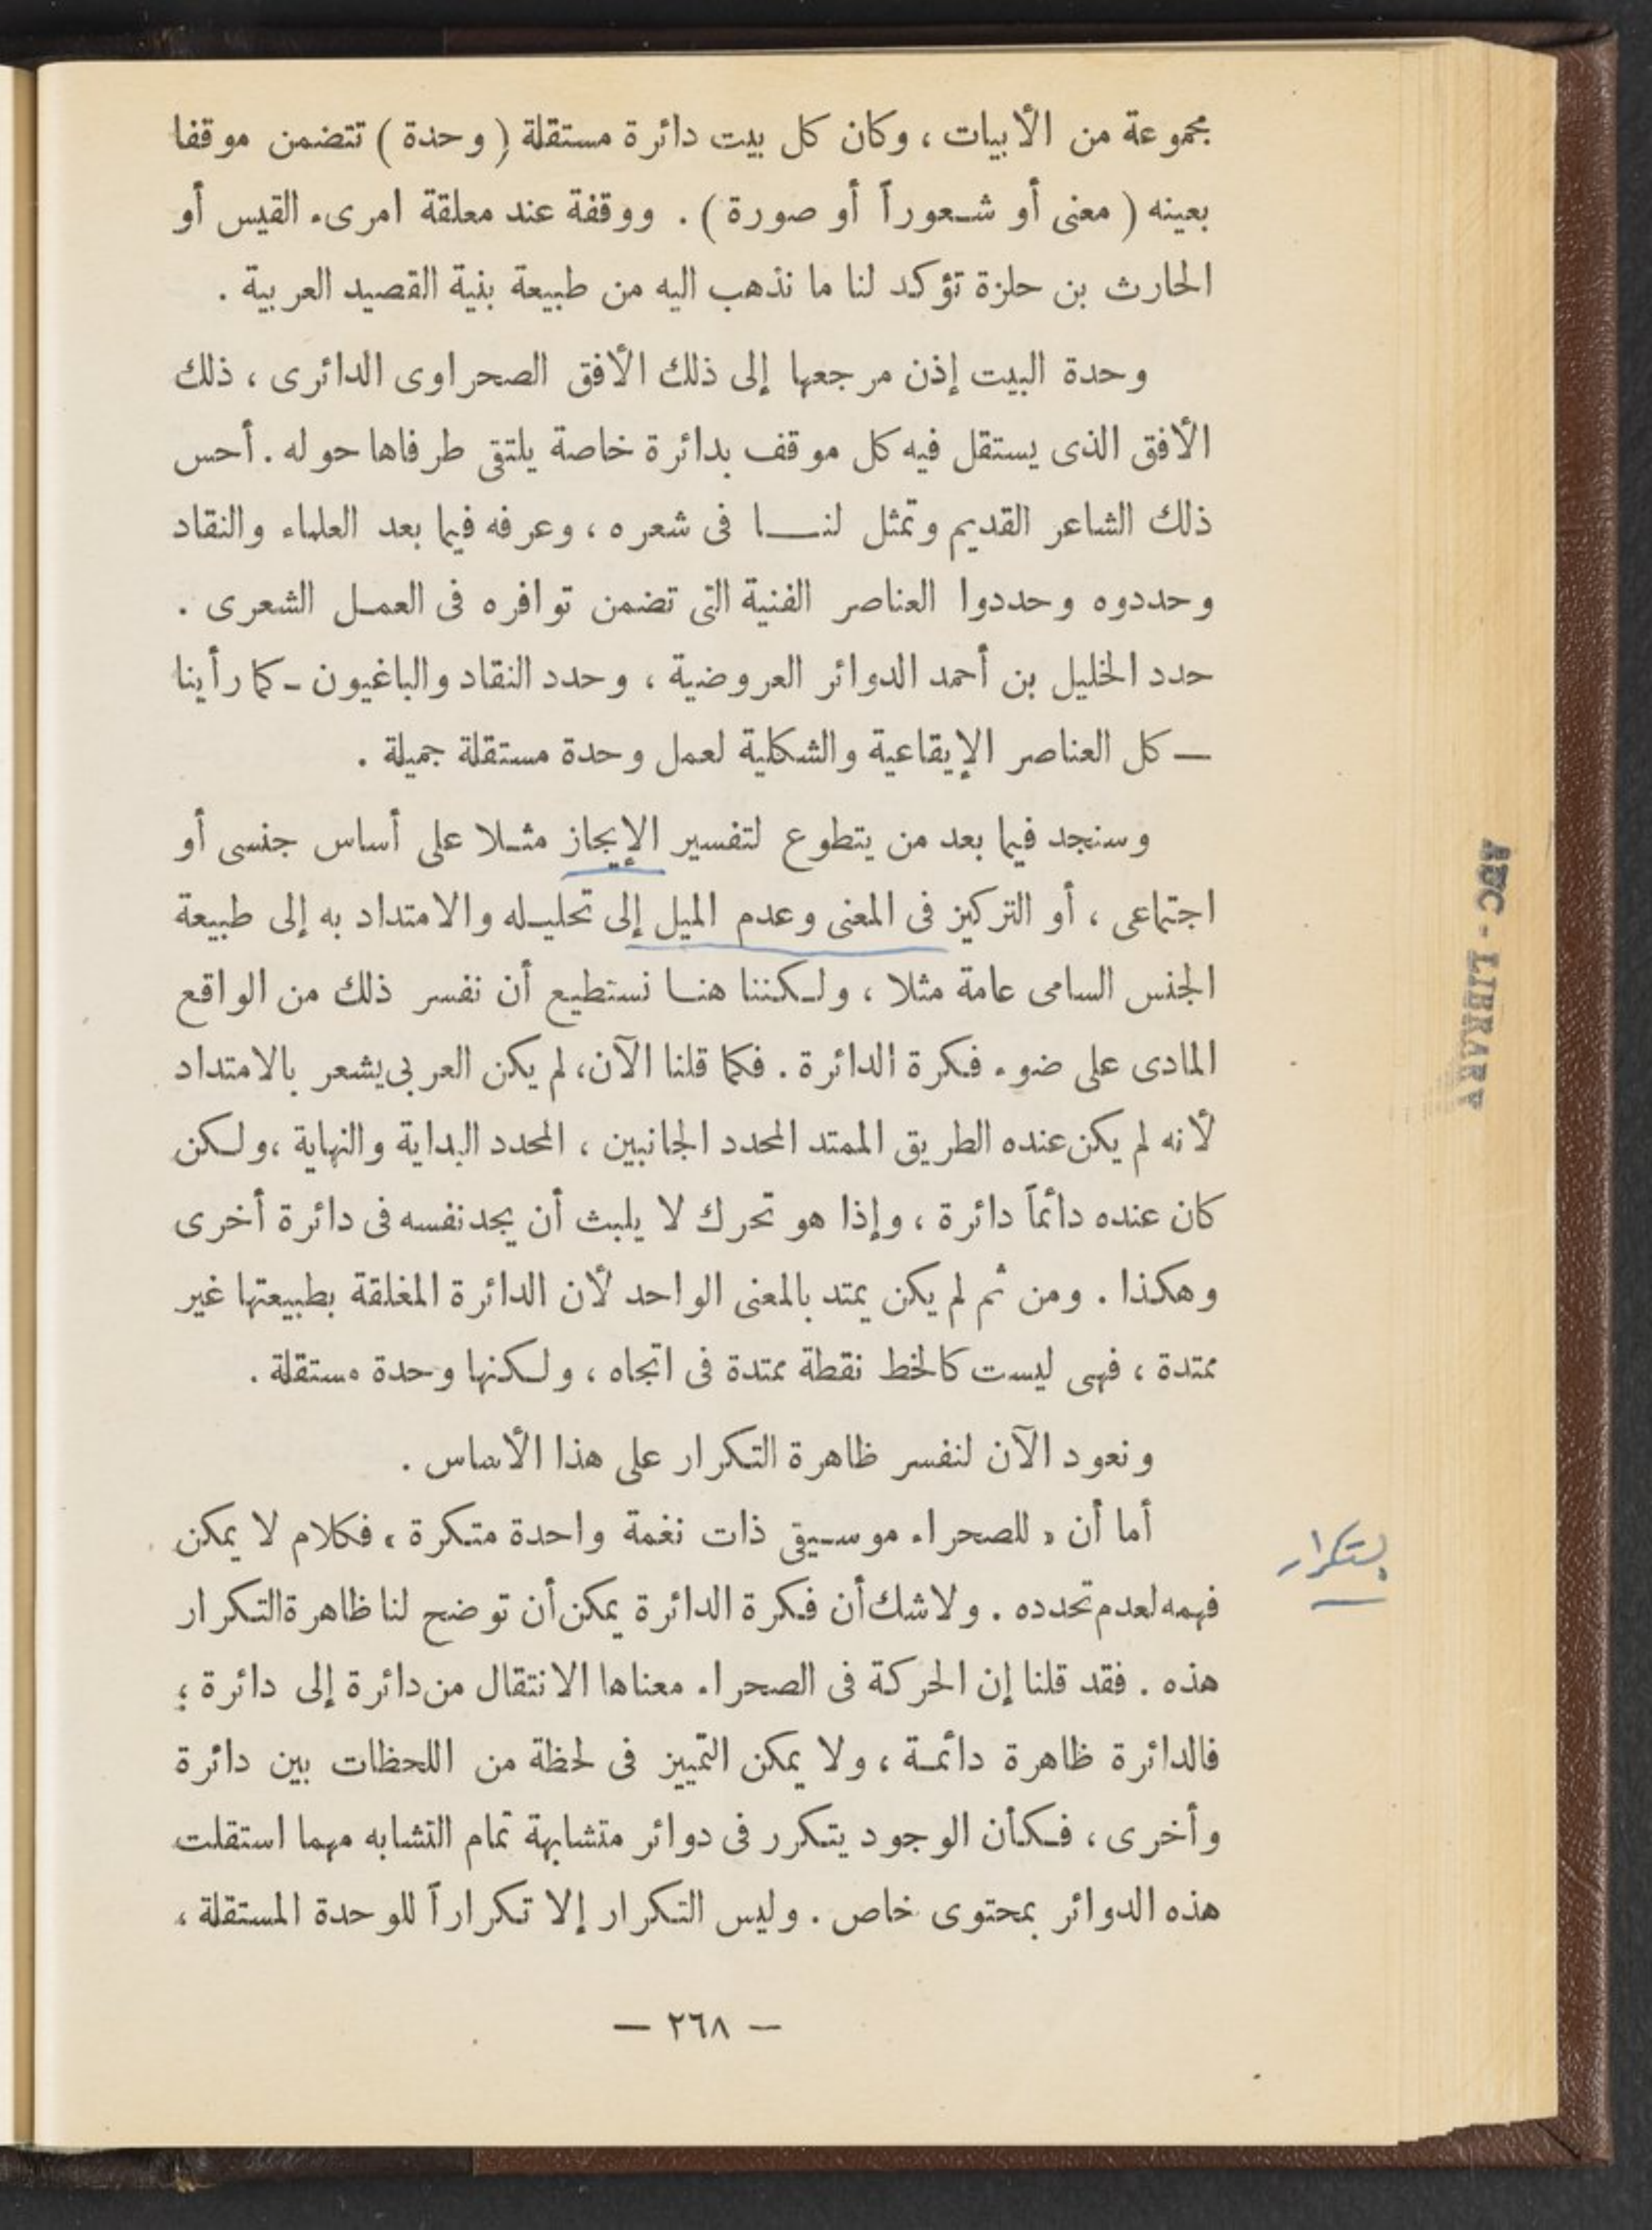 مجموعة من الأبيات ، وكان كل بيت دائرة مستقلة ( وحدة ) تتضمن موقفا
بعينه ( معنى أو شعوراً أو صورة ) . ووقفة عند معلقة امرىء القيس أو
الحارث بن حلزة تؤكد لنا ما نذهب اليه من طبيعة بنية القصيد العربية .
وحدة البيت إذن مرجعها إلى ذلك الأفق الصحراوى الدائرى ، ذلك
الأفق الذى يستقل فيه كل موقف بدائرة خاصة يلتقى طرفاها حوله . أحس
ذلك الشاعر القديم وتمثل لنا فى شعره ، وعرفه فيما بعد العلماء والنقاد
وحددوه وحددوا العناصر الفنية التى تضمن توافره فى العمل الشعرى .
حدد الخليل بن أحمد الدوائر العروضية ، وحدد النقاد والباغيون - كما رأينا
— كل العناصر الإيقاعية والشكلية لعمل وحدة مستقلة جميلة .
وسنجد فيما بعد من يتطوع لتفسير الإيجاز مثلا على أساس جنسى أو
اجتماعى ، أو التركيز فى المعنى وعدم الميل إلى تحليله والامتداد به إلى طبيعة
الجنس السامى عامة مثلا ، ولكننا هنا نستطيع أن نفسر ذلك من الواقع
المادى على ضوء فكرة الدائرة . فكما قلنا الآن، لم يكن العربى يشعر بالامتداد
لأنه لم يكن عنده الطريق الممتد المحدد الجانبين ، المحدد البداية والنهاية ، ولكن
كان عنده دائماً دائرة ، وإذا هو تحرك لا يلبث أن يجد نفسه فى دائرة أخرى
وهكذا . ومن ثم لم يكن يمتد بالمعنى الواحد لأن الدائرة المغلقة بطبيعتها غير
ممتدة ، فهى ليست كالخط نقطة ممتدة فى اتجاه ، ولكنها وحدة مستقلة .
ونعود الآن لنفسر ظاهرة التكرار على هذا الأساس .
أما أن « للصحراء موسيقى ذات نغمة واحدة متكرة » فكلام لا يمكن
فهمه لعدم تحدده . ولا شك أن فكرة الدائرة يمكن أن توضح لنا ظاهرة التكرار
هذه . فقد قلنا إن الحركة فى الصحراء معناها الانتقال من دائرة إلى دائرة ؛
فالدائرة ظاهرة دائمة ، ولا يمكن التمييز فى لحظة من اللحظات بين دائرة
وأخرى ، فكأن الوجود يتكرر فى دوائر متشابهة تمام التشابه مهما استقلت
هذه الدوائر بمحتوى خاص . وليس التكرار إلا تكراراً للوحدة المستقلة ،
— ٢٦٨ —
AUC - LIBRARY